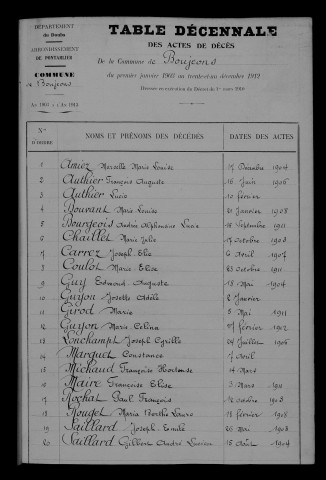 DÉPARTEMENT
du Doubs
ARRONDISSEMENT
DE PONTARLIER
COMMUNE
de Boujeons
TABLE DÉCENNALE
DES ACTES DE DÉCÈS
De la Commune de Boujeons
du premier janvier 1903 au trente-et-un décembre 1912
Dressée en exécution du Décret du 1er mars 1910
An 1903 à An 1912
Nos D'ORDRE NOMS ET PRÉNOMS DES DÉCÉDÉS DATES DES ACTES
1 Amiez Marcelle Marie Louise Décembre 1904
2 Authier François Auguste 16 Juin 1906
3 Authier Lucia 10 février
4 Bouvant Marie Louise 21 Janvier 1908
5 Bourgeois Andrée Alphonsine Septembre 1911
6 Chaillet Marie Julie 17 Octobre 1903
7 Carrez Joseph Elie 6 Avril 1907
8 Coulot Marie Elise 23 Octobre 1911
9 Guy Edmond Auguste 18 Mai 1904
10 Guyon Josette Adèle 2 Janvier
11 Girod Marie 8 Mai 1911
12 Guyon Marie Celina février 1912
13 Lonchampt Joseph Cyrille Juillet 1906
14 Marguet Constance 7 Avril
15 Michaud Françoise Hortense 14 Mars
16 Maire Françoise Elise 3 Mars 1911
17 Rochat Paul François Octobre 1903
18 Rouget Maria Berthe Laure 18 février 1908
19 Saillard Joseph Emile 26 Mai 1903
20 Saillard Gilbert André Août 1904